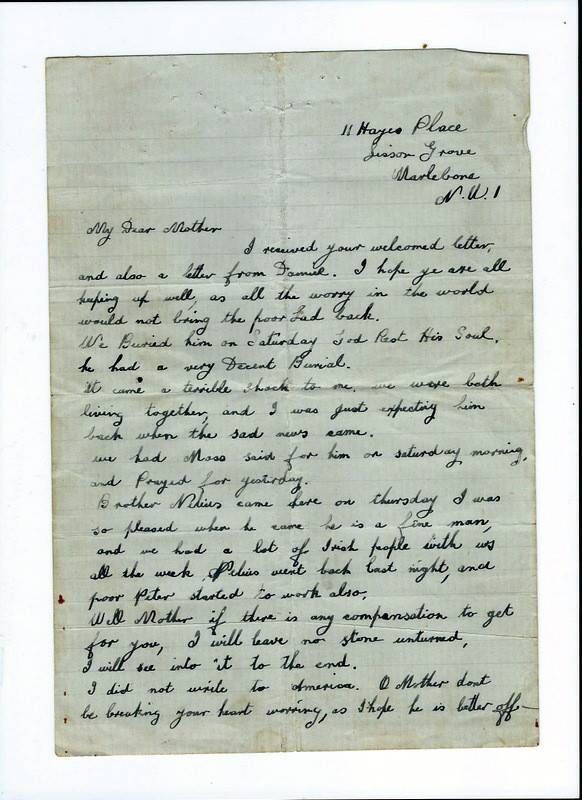 11 Hayes Place
Lisson Grove
Marlebone
N.W.1
My Dear Mother
I received your welcomed letter,
and also a letter from Daniel. I hope ye are all
keeping up well, as all the worry in the world
would not bring the poor Lad back.
We Buried him on Saturday God Rest His Soul,
he had a very Decent Burial.
It came a terrible shock to me, we were both
living together, and I was just expecting him
back when the sad news came.
we had Mass said for him on saturday morning,
and Prayed for yesterday.
Brother came here on thursday I was
so pleased when he came he is a fine man,
and we had a lot of Irish people with us
all the week. went back last night, and
poor Peter started to work also,
Well Mother if there is any compensation to get
for you, I will leave no stone unturned,
I will see into it to the end.
I did not write to America. O Mother dont
be breaking your heart worring, as I hope he is better off